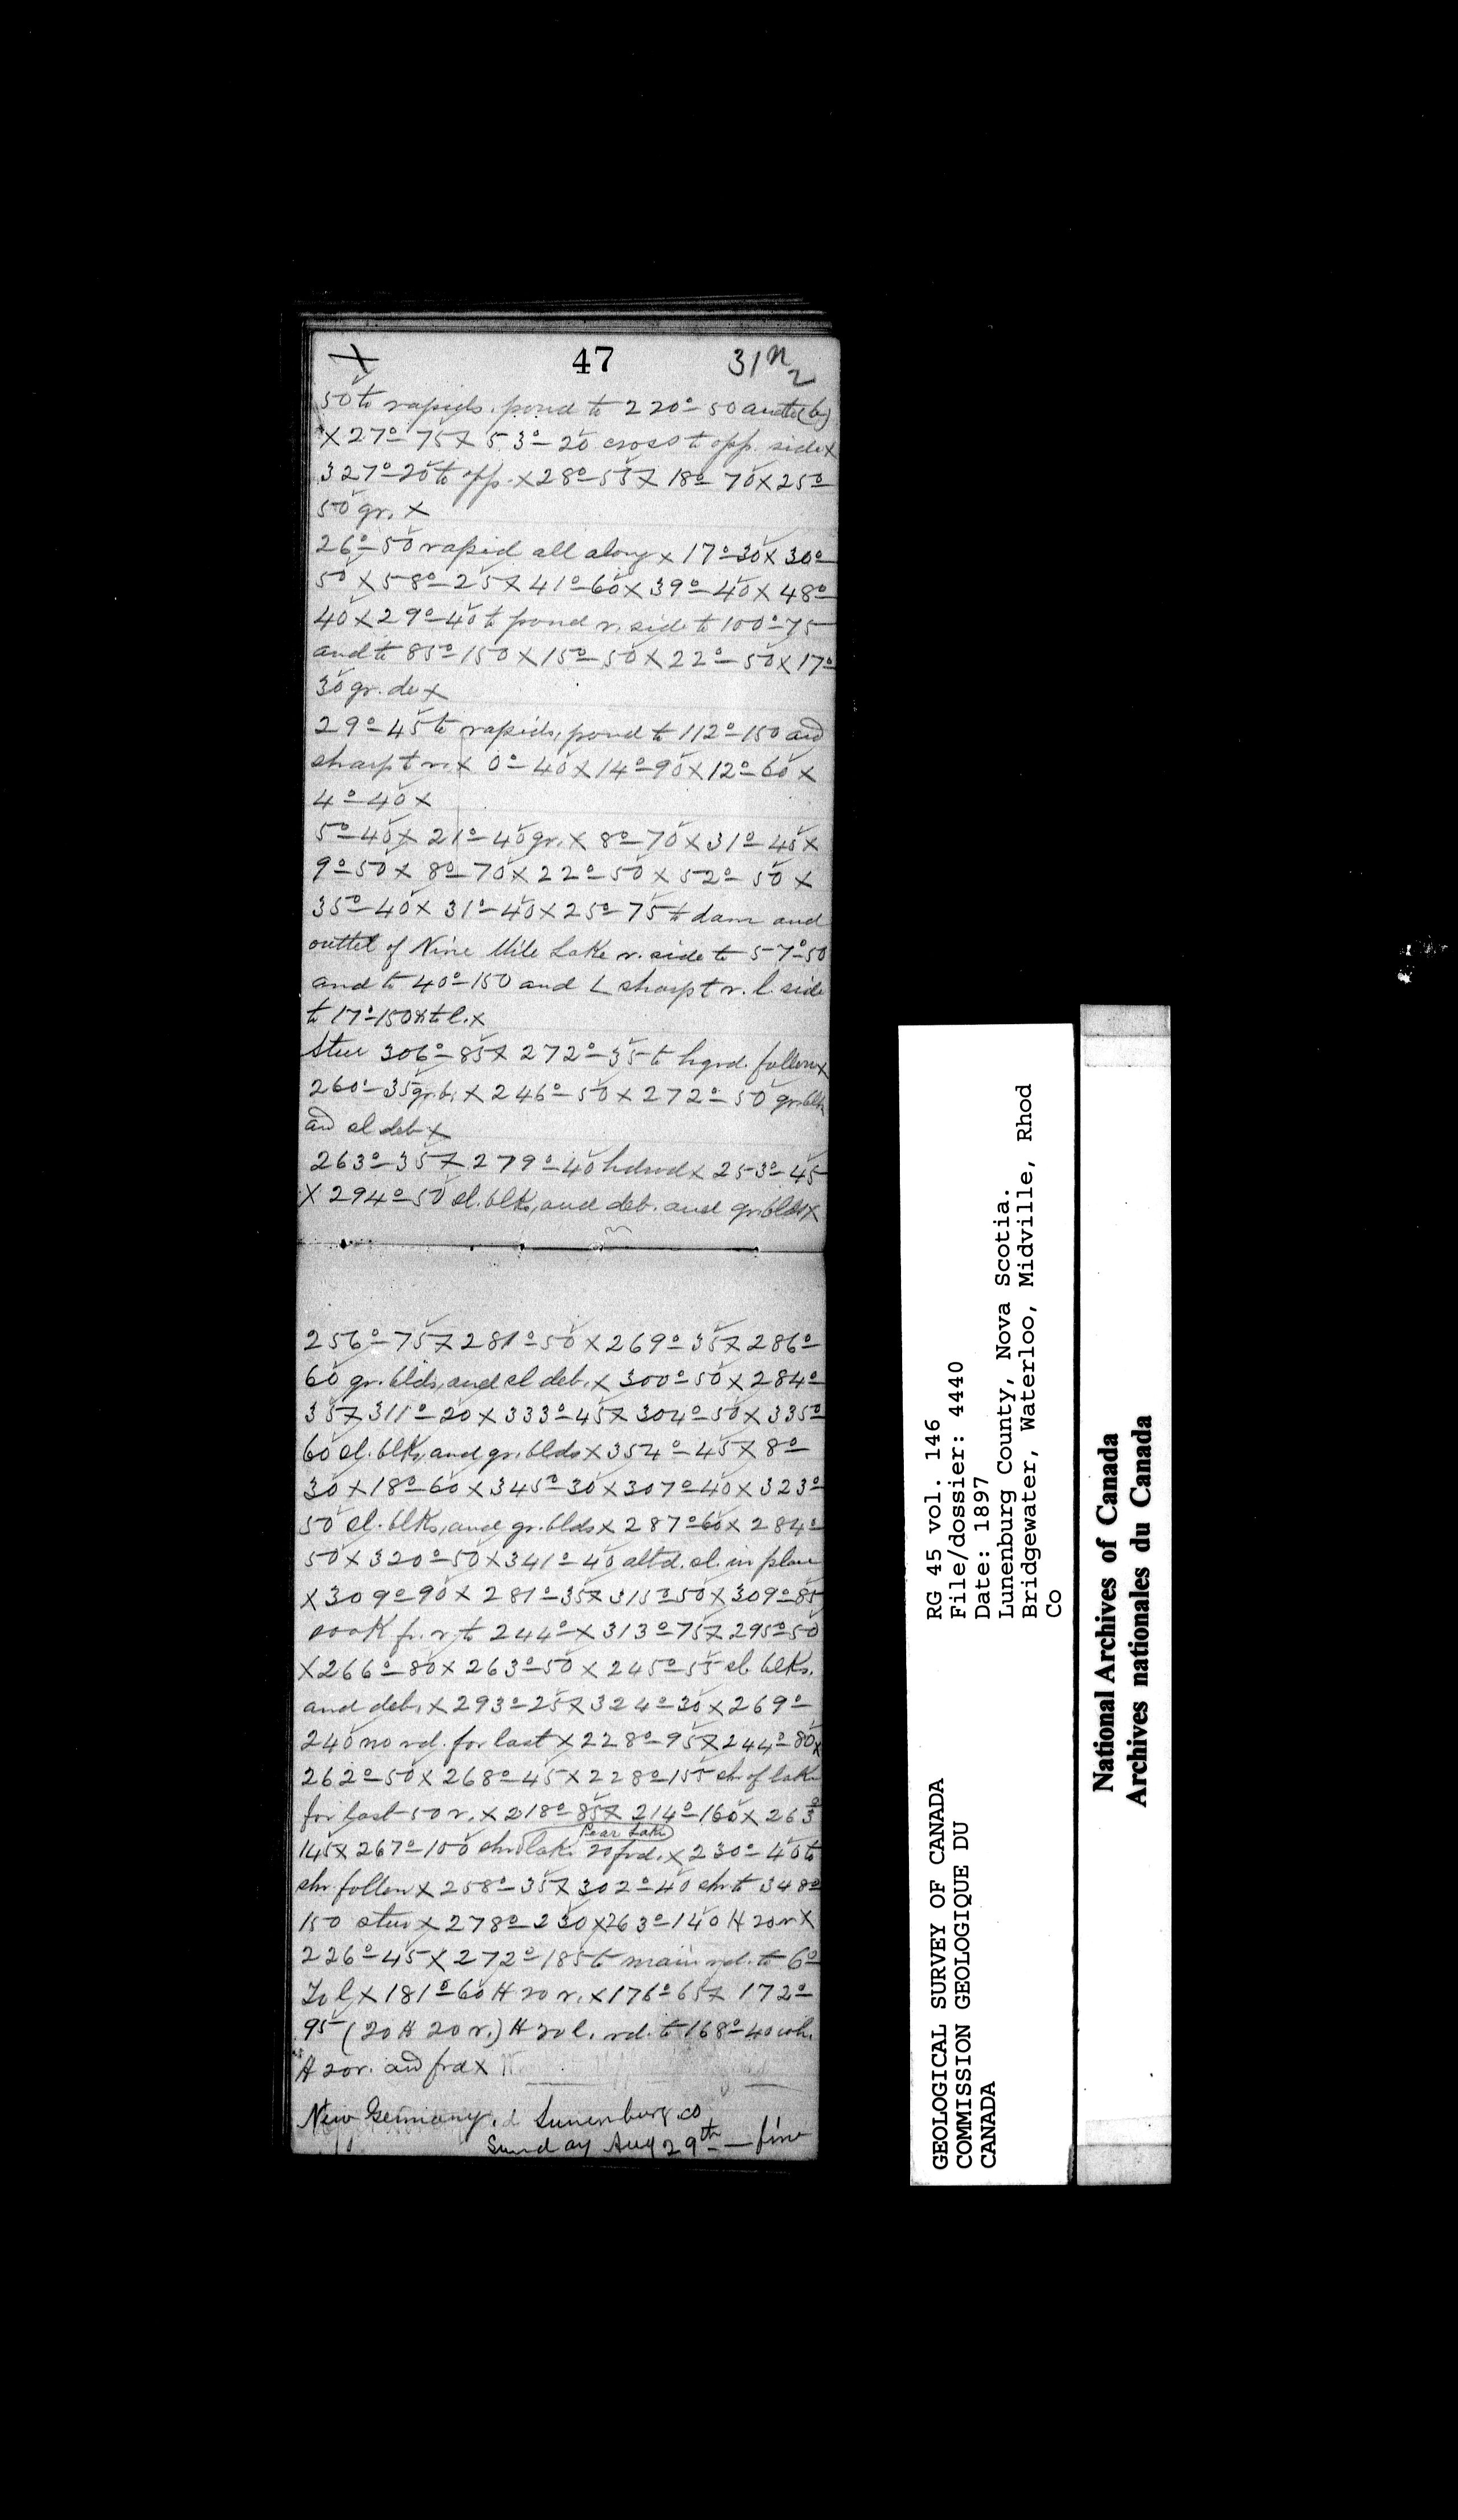 X 47 31 n/2
50 to rapids. pond to 220°-50 and to (6)
X 27°-75 X 53°-20 cross to opp. side X
327°-20 to opp. X 28°-55 X 18°-70 X 25°
50 gr. X
26°-50 rapid all along X 17°-30 X 30°
50 X 58°-25 X 41°-60 X 39°-40 X 48°
40 X 29°-40 to pond r. side to 100°-75
and to 85°-150 X 15°-50 X 22°-50 X 17°
30 gr. do X
29°-45 to rapids, pond to 112°-150 and
sharp t r. X 0°-40 X 14°-90 X 12°-60 X
4°-40 X
5°-40 X 21°-40 gr. X 8°-70 X 31°-45 X
9°-50 X 8°-70 X 22°-50 X 52°-50 X
35°-40 X 31°-40 X 25°-75 to dam and
outlet of Nine Mile Lake r. side to 57°-50
and to 40°-150 and L sharp t r. l. side
to 17°-150 X t l. X
Stur 306°-85 X 272°-35 to hgrd. follow X
260°-35 gr. b. X 246°-50 X 272°-50 gr. blk
and sl deb X
263°-35 X 279°-40 hdwd X 253°-45
X 294°-50 sl. blks, and deb. and gr. blds X
256°-75 X 281°-50 X 269°-35 X 286°
60 gr. blds, and sl deb. X 300°-50 X 284°
35 X 311°-20 X 333°-45 X 304°-50 X 335°
60 sl. blks, and gr. blds X 354°-45 X 8°
30 X 18°-60 X 345°-30 X 307°-40 X 323°
50 sl. blks, and gr. blds X 287°-60 X 284°
50 X 320°-50 X 341°-40 altd. sl. in place
X 309°-90 X 281°-35 X 315°-50 X 309°-85
rd. r. to 244° X 313°-75 X 295°-50
X 266°-80 X 263°-50 X 245°-55 sl. blks.
and deb. X 293°-25 X 324°-30 X 269°
240 no rd. for last X 228°-95 X 244°-80 X
262°-50 X 268°-45 X 228°-155 shr of lake
for last 50 r. X 218°-85 X 214°-160 X 263°
Pear Lake
145 X 267°-100 shr lake 20 frd. X 230°-40 to
shr. follow X 258°-35 X 302°-40 shr to 348°
150 stur X 278°-230 X 263°-140 H 20 r X
226°-45 X 272°-185 to main rd. to 6°
To l X 181°-60 H 20 r. X 176°-65 X 172°
95 (20 H 20 r.) H 20 l. rd. to 168°-40 wh.
H 20 r. and frd X
New Germany, Lunenburg co
Sunday Aug 29th — fine
RG 45 vol. 146
File/dossier: 4440
Date: 1897
Lunenburg County, Nova Scotia.
Bridgewater, Waterloo, Midville, Rhod
Co
GEOLOGICAL SURVEY OF CANADA
COMMISSION GEOLOGIQUE DU
CANADA
National Archives of Canada
Archives nationales du Canada